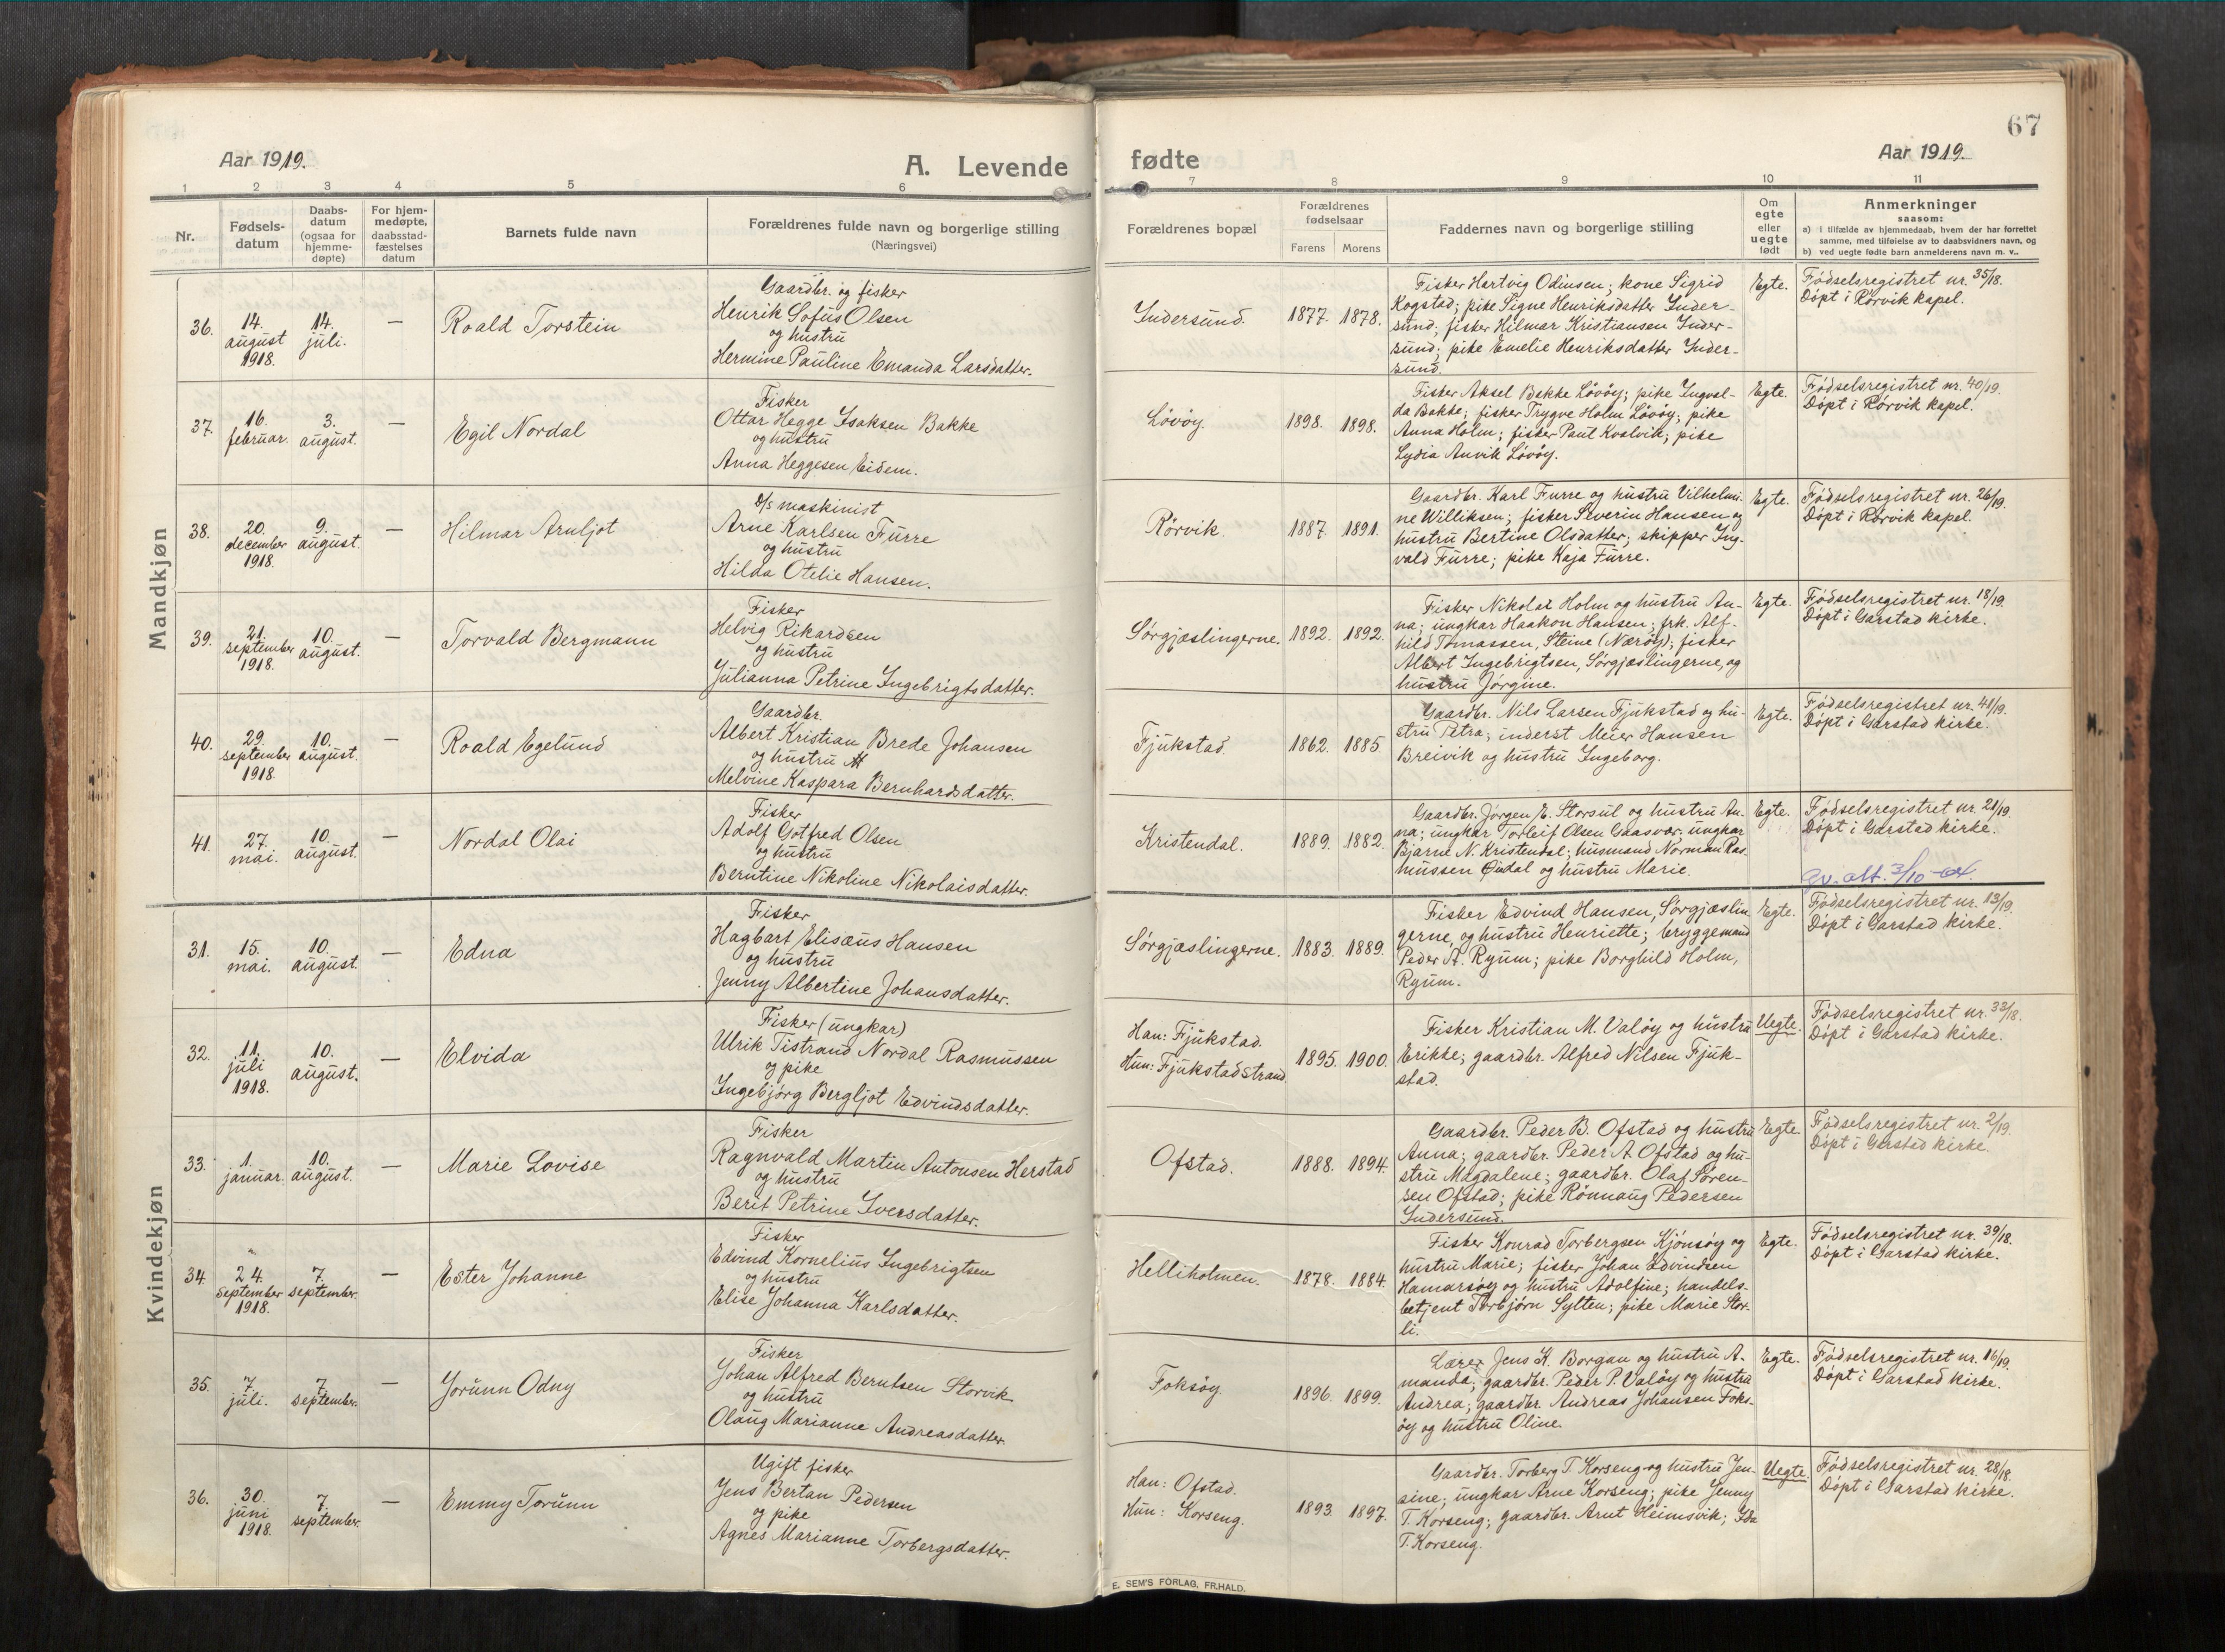 67
Aar 1919.
A. Levende
fødte
Aar 1919.
1 2 3 4 5 6
7 8 9 10 11
Nr.
Fødsels-
datum
Daabs-
datum
(ogsaa for
hjemme-
døpte)
For hjem-
medøpte,
daabsstad-
fæstelses
datum
Barnets fulde navn
Forældrenes fulde navn og borgerlige stilling
(Næringsvei)
Forældrenes bopæl
Forældrenes
fødselsaar
Farens Morens
Faddernes navn og borgerlige stilling
Om
egte
eller
uegte
født
Anmerkninger
saasom:
a) i tilfælde av hjemmedaab, hvem der har forrettet
samme, med tilføielse av to daabsvidners navn, og
b) ved uegte fødte barn anmelderens navn m. v..
Mandkjøn
36.
14.
august
1918.
14.
juli.
—
Roald Torstein
Gaardbr. og fisker
Henrik Sofus Olsen
og hustru
Hermine Pauline Emanda Larsdatter.
Indersund.
1877. 1878.
Fisker Hartvig Odinsen; kone Sigrid
Kogstad; pike Signe Henriksdatter Inder-
sund; fisker Hilmar Kristiansen Inder-
sund; pike Emelie Henriksdatter Inder-
sund.
Egte.
Fødselsregistret nr. 35/18.
Døpt i Rørvik kapel.
37.
16.
februar.
3.
august.
—
Egil Nordal
Fisker
Ottar Hegge Isaksen Bakke
og hustru
Anna Heggesen Eidem.
Løvøy.
1898. 1898.
Fisker Aksel Bakke Løvøy; pike Ingval-
da Bakke; fisker Trygve Holm Løvøy; pike
Anna Holm; fisker Paul Kvalvik; pike
Lydia Anvik Løvøy.
Egte.
Fødselsregistret nr. 40/19.
Døpt i Rørvik kapel.
38.
20.
december
1918.
9.
august.
—
Hilmar Arnljot
D/s maskinist
Arne Karlsen Furre
og hustru
Hilda Otelie Hansen.
Rørvik.
1887. 1891.
Gaardbr. Karl Furre og hustru Vilhelmi-
ne Williksen; fisker Severin Hansen og
hustru Bertine Olsdatter; skipper Ing-
vald Furre; pike Kaja Furre.
Egte.
Fødselsregistret nr. 26/19.
Døpt i Rørvik kapel.
39.
21.
september
1918.
10.
august.
—
Torvald Bergmann
Fisker
Helvig Rikardsen
og hustru
Julianna Petrine Ingebrigtsdatter.
Sørgjæslingerne.
1892. 1892.
Fisker Nikolai Holm og hustru An-
na; ungkar Haakon Hansen; frk. Alf-
hild Tomassen, Steine (Nærøy); fisker
Albert Ingebrigtsen, Sørgjæslingerne, og
hustru Jørgine.
Egte.
Fødselsregistret nr. 18/19.
Døpt i Garstad kirke.
40.
29.
september
1918.
10.
august.
—
Roald Egelund
Gaardbr.
Albert Kristian Brede Johansen
og hustru
Melvine Kaspara Bernhardsdatter.
Fjukstad.
1862. 1885.
Gaardbr. Nils Larsen Fjukstad og hu-
stru Petra; inderst Meier Hansen
Breivik og hustru Ingeborg.
Egte.
Fødselsregistret nr. 41/19.
Døpt i Garstad kirke.
41.
27.
mai.
10.
august.
—
Nordal Olai
Fisker
Adolf Gotfred Olsen
og hustru
Berntine Nikoline Nikolaisdatter.
Kristendal.
1889. 1882.
Gaardbr. Jørgen E. Storsul og hustru An-
na; ungkar Torleif Olsen Gaasvær; ungkar
Bjarne N. Kristendal; husmand Norman Ras-
mussen Øidal og hustru Marie.
Egte.
Fødselsregistret nr. 21/19.
Døpt i Garstad kirke.
Kvindekjøn
31.
15.
mai.
10.
august.
—
Edna
Fisker
Hagbart Elisæus Hansen
og hustru
Jenny Albertine Johansdatter.
Sørgjæslingerne.
1883. 1889.
Fisker Edvind Hansen, Sørgjæslin-
gerne, og hustru Henriette; bryggemand
Peder A. Ryum; pike Borghild Holm,
Ryum.
Egte.
Fødselsregistret nr. 13/19.
Døpt i Garstad kirke.
32.
11.
juli
1918.
10.
august.
—
Elvida
Fisker (ungkar)
Ulrik Tistrand Nordal Rasmussen
og pike
Ingebjørg Bergljot Edvindsdatter.
Han: Fjukstad.
Hun: Fjukstadstrand
1895. 1900.
Fisker Kristian M. Valøy og hustru
Erikke; gaardbr. Alfred Nilsen Fjuk-
stad.
Uegte.
Fødselsregistret nr. 33/18.
Døpt i Garstad kirke.
33.
1.
januar.
10.
august.
—
Marie Lovise
Fisker
Ragnvald Martin Antonsen Herstad
og hustru
Berit Petrine Iversdatter.
Ofstad.
1888. 1894.
Gaardbr. Peder B. Ofstad og hustru
Anna; gaardbr. Peder A. Ofstad og hu-
stru Magdalene; gaardbr. Olaf Søren-
sen Ofstad; pike Rønnaug Pedersen
Indersund.
Egte.
Fødselsregistret nr. 2/19.
Døpt i Garstad kirke.
34.
24.
september
1918.
7.
september.
—
Ester Johanne
Fisker
Edvind Kornelius Ingebrigtsen
og hustru
Elise Johanna Karlsdatter.
Helliholmen.
1878. 1884.
Fisker Konrad Torbergsen Kjønsøy og
hustru Marie; fisker Johan Edvindsen
Hamarsøy og hustru Adolfine; handels-
betjent Torbjørn Sylten; pike Marie Stor-
li.
Egte.
Fødselsregistret nr. 39/18.
Døpt i Garstad kirke.
35.
7.
juli.
7.
september.
—
Jorunn Odny
Fisker
Johan Alfred Berntsen Storvik
og hustru
Olaug Marianne Andreasdatter.
Foksøy.
1896. 1899.
Lærer Jens K. Borgan og hustru A-
manda; gaardbr. Peder P. Valøy og hustru
Andrea; gaardbr. Andreas Johansen Foks-
øy og hustru Oline.
Egte.
Fødselsregistret nr. 16/19.
Døpt i Garstad kirke.
36.
30.
juni
1918.
7.
september.
—
Emmy Torunn
Ugift fisker
Jens Bertan Pedersen
og pike
Agnes Marianne Torbergsdatter.
Han: Ofstad.
Hun: Korseng.
1893. 1897.
Gaardbr. Torberg T. Korseng og hustru Jen-
sine; ungkar Arne Korseng; pike Jenny
T. Korseng; gaardbr. Arnt Heimsvik; Ida
T. Korseng.
Uegte.
Fødselsregistret nr. 28/18.
Døpt i Garstad kirke.
E. SEM'S FORLAG, FR.HALD.